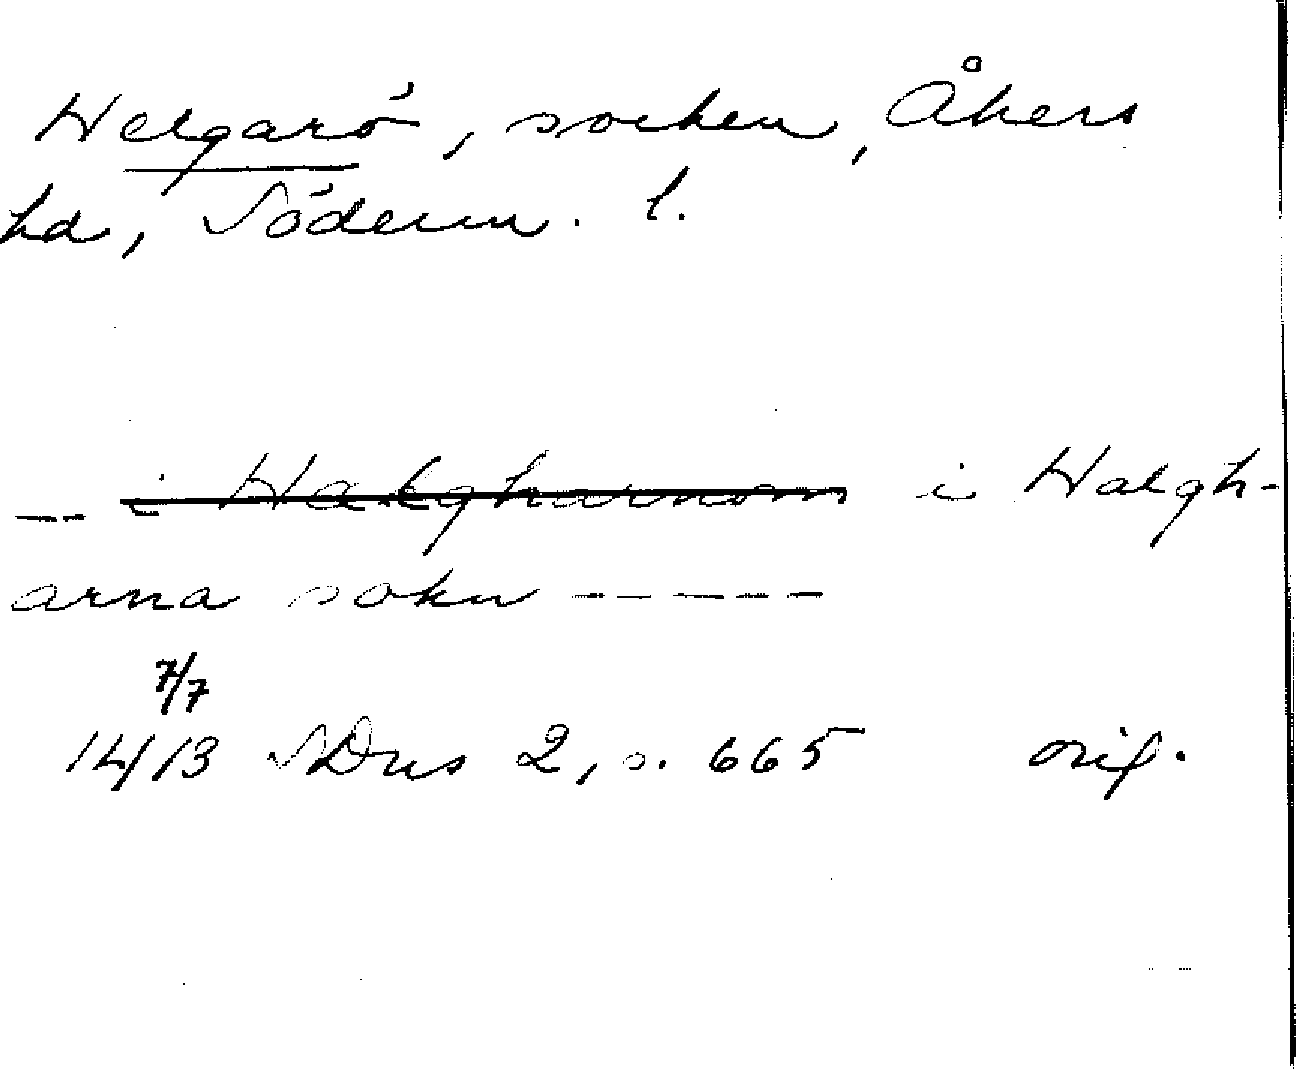 Helgarö, socken, Åkers
hd, Söderm. l.
-- i Halgharnom i Halgh-
arna sokn -----
7/7
1413 SDns 2, s. 665 orig.